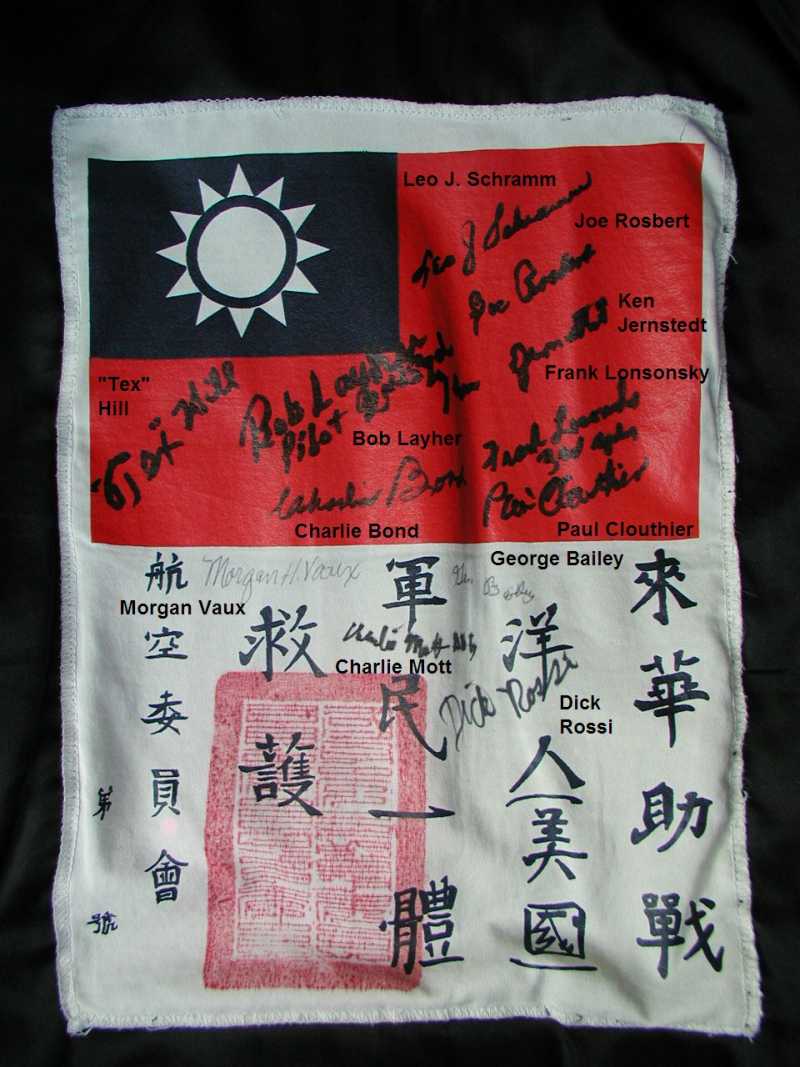 Leo J. Schramm
Leo J Schramm
Joe Rosbert
Joe Rosbert
Ken
Jernstedt
Jernstedt
"Tex"
Hill
"Tex" Hill
Frank Lonsonsky
Bob Layher
Pilot
Bob Layher
Frank Losonsky
Charlie Bond
Charlie Bond
Paul Clouthier
Paul Clouthier
George Bailey
Bailey
Morgan H. Vaux
Morgan Vaux
Charlie Mott
Charlie Mott
Dick Rossi
Dick
Rossi
來華助戰
洋人(美國)
軍民一體
救護
航空委員會
第 號